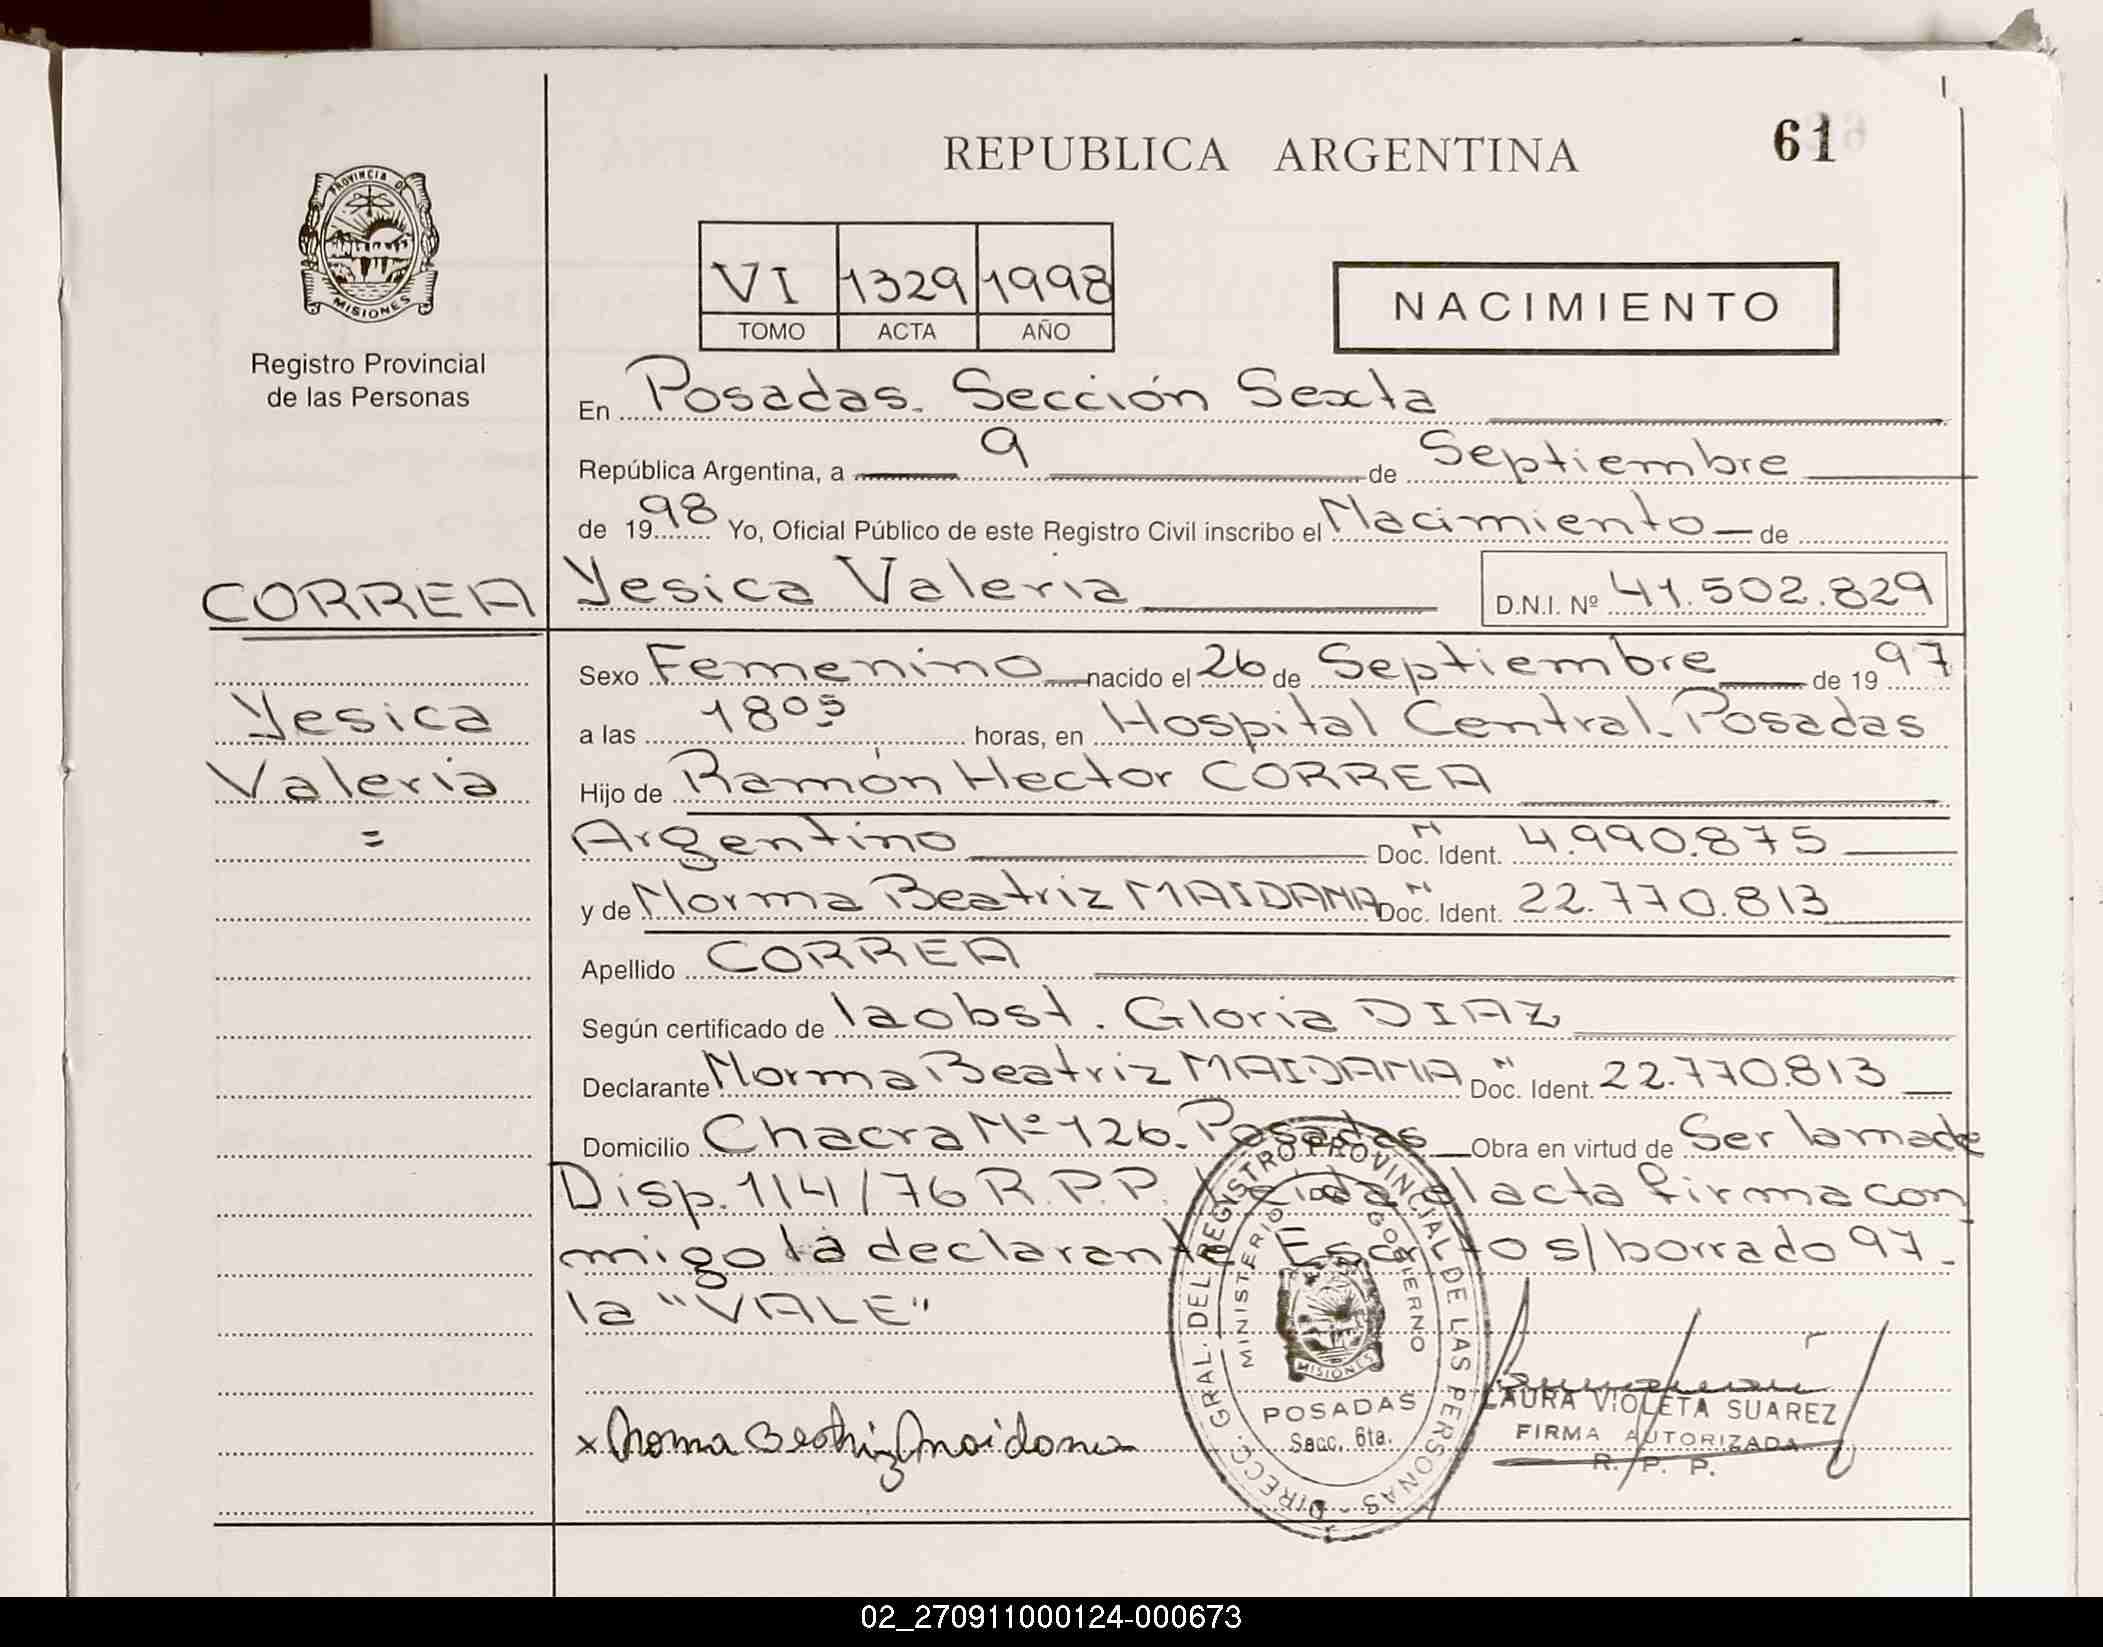 61
REPUBLICA ARGENTINA
PROVINCIA DE
MISIONES
Registro Provincial
de las Personas
VI 1329 1998
TOMO ACTA AÑO
NACIMIENTO
En Posadas. Sección Sexta
República Argentina, a 9 de Septiembre
de 1998 Yo, Oficial Público de este Registro Civil inscribo el Nacimiento de
CORREA Yesica Valeria D.N.I. Nº 41.502.829
Sexo Femenino nacido el 26 de Septiembre de 1997
Yesica
a las 18⁰⁵ horas, en Hospital Central. Posadas
Valeria
Hijo de Ramón Hector CORREA
=
Argentino Doc. Ident. 4.990.875
y de Norma Beatriz MAIDANA Doc. Ident. 22.770.813
Apellido CORREA
Según certificado de la obst. Gloria DIAZ
Declarante Norma Beatriz MAIDANA Doc. Ident. 22.770.813
Domicilio Chacra Nº 126. Posadas Obra en virtud de Ser la madre
Disp. 114/76 R.P.P. Leida el acta firma con
migo la declarante Escrito s/borrado 97.
la "VALE"
DIRECC. GRAL. DEL REGISTRO PROVINCIAL DE LAS PERSONAS
MINISTERIO DE GOBIERNO
MISIONES
POSADAS
Secc. 6ta.
x Norma Beatriz Maidana
LAURA VIOLETA SUAREZ
FIRMA AUTORIZADA
R. P. P.
02_270911000124-000673